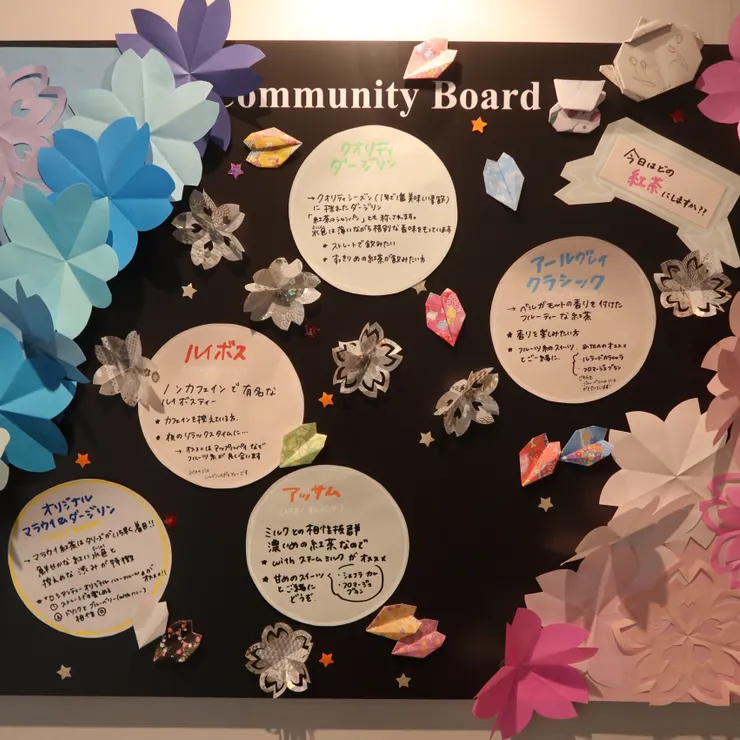 Community Board
今日はどの
紅茶
にしますか??
クオリティ
ダージリン
→クオリティシーズン(1年で1番美味しい季節)
に採れたダージリン
「紅茶のシャンパン」とも称されます。
水色は薄いながら格別な香味をもっています
ストレートで飲みたい
すっきりめの紅茶が飲みたい方
アールグレイ
クラシック
→ベルガモットの香りを付けた
フルーティーな紅茶
香りを楽しみたい方
フルーツ系のスイーツ
とご一緒に。
ルイボス
ノンカフェインで有名な
ルイボスティー
カフェインを控えている方、
夜のリラックスタイムに…
→オススメはアップルパイなど
フルーツ系が良く合います
オリジナル
マラウイ&ダージリン
→マラウイ紅茶はタリーズがいち早く着目!!
鮮やかな紅い水色と
控えめな渋みが特徴
オススメ!!
①ストレートで楽しめる
相性◎
アッサム
ミルクとの相性抜群
濃いめの紅茶なので
with スチームミルクがオススメ
甘めのスイーツ
とご一緒に
どうぞ。
・ショコラ
・フロマージュ
ブラン